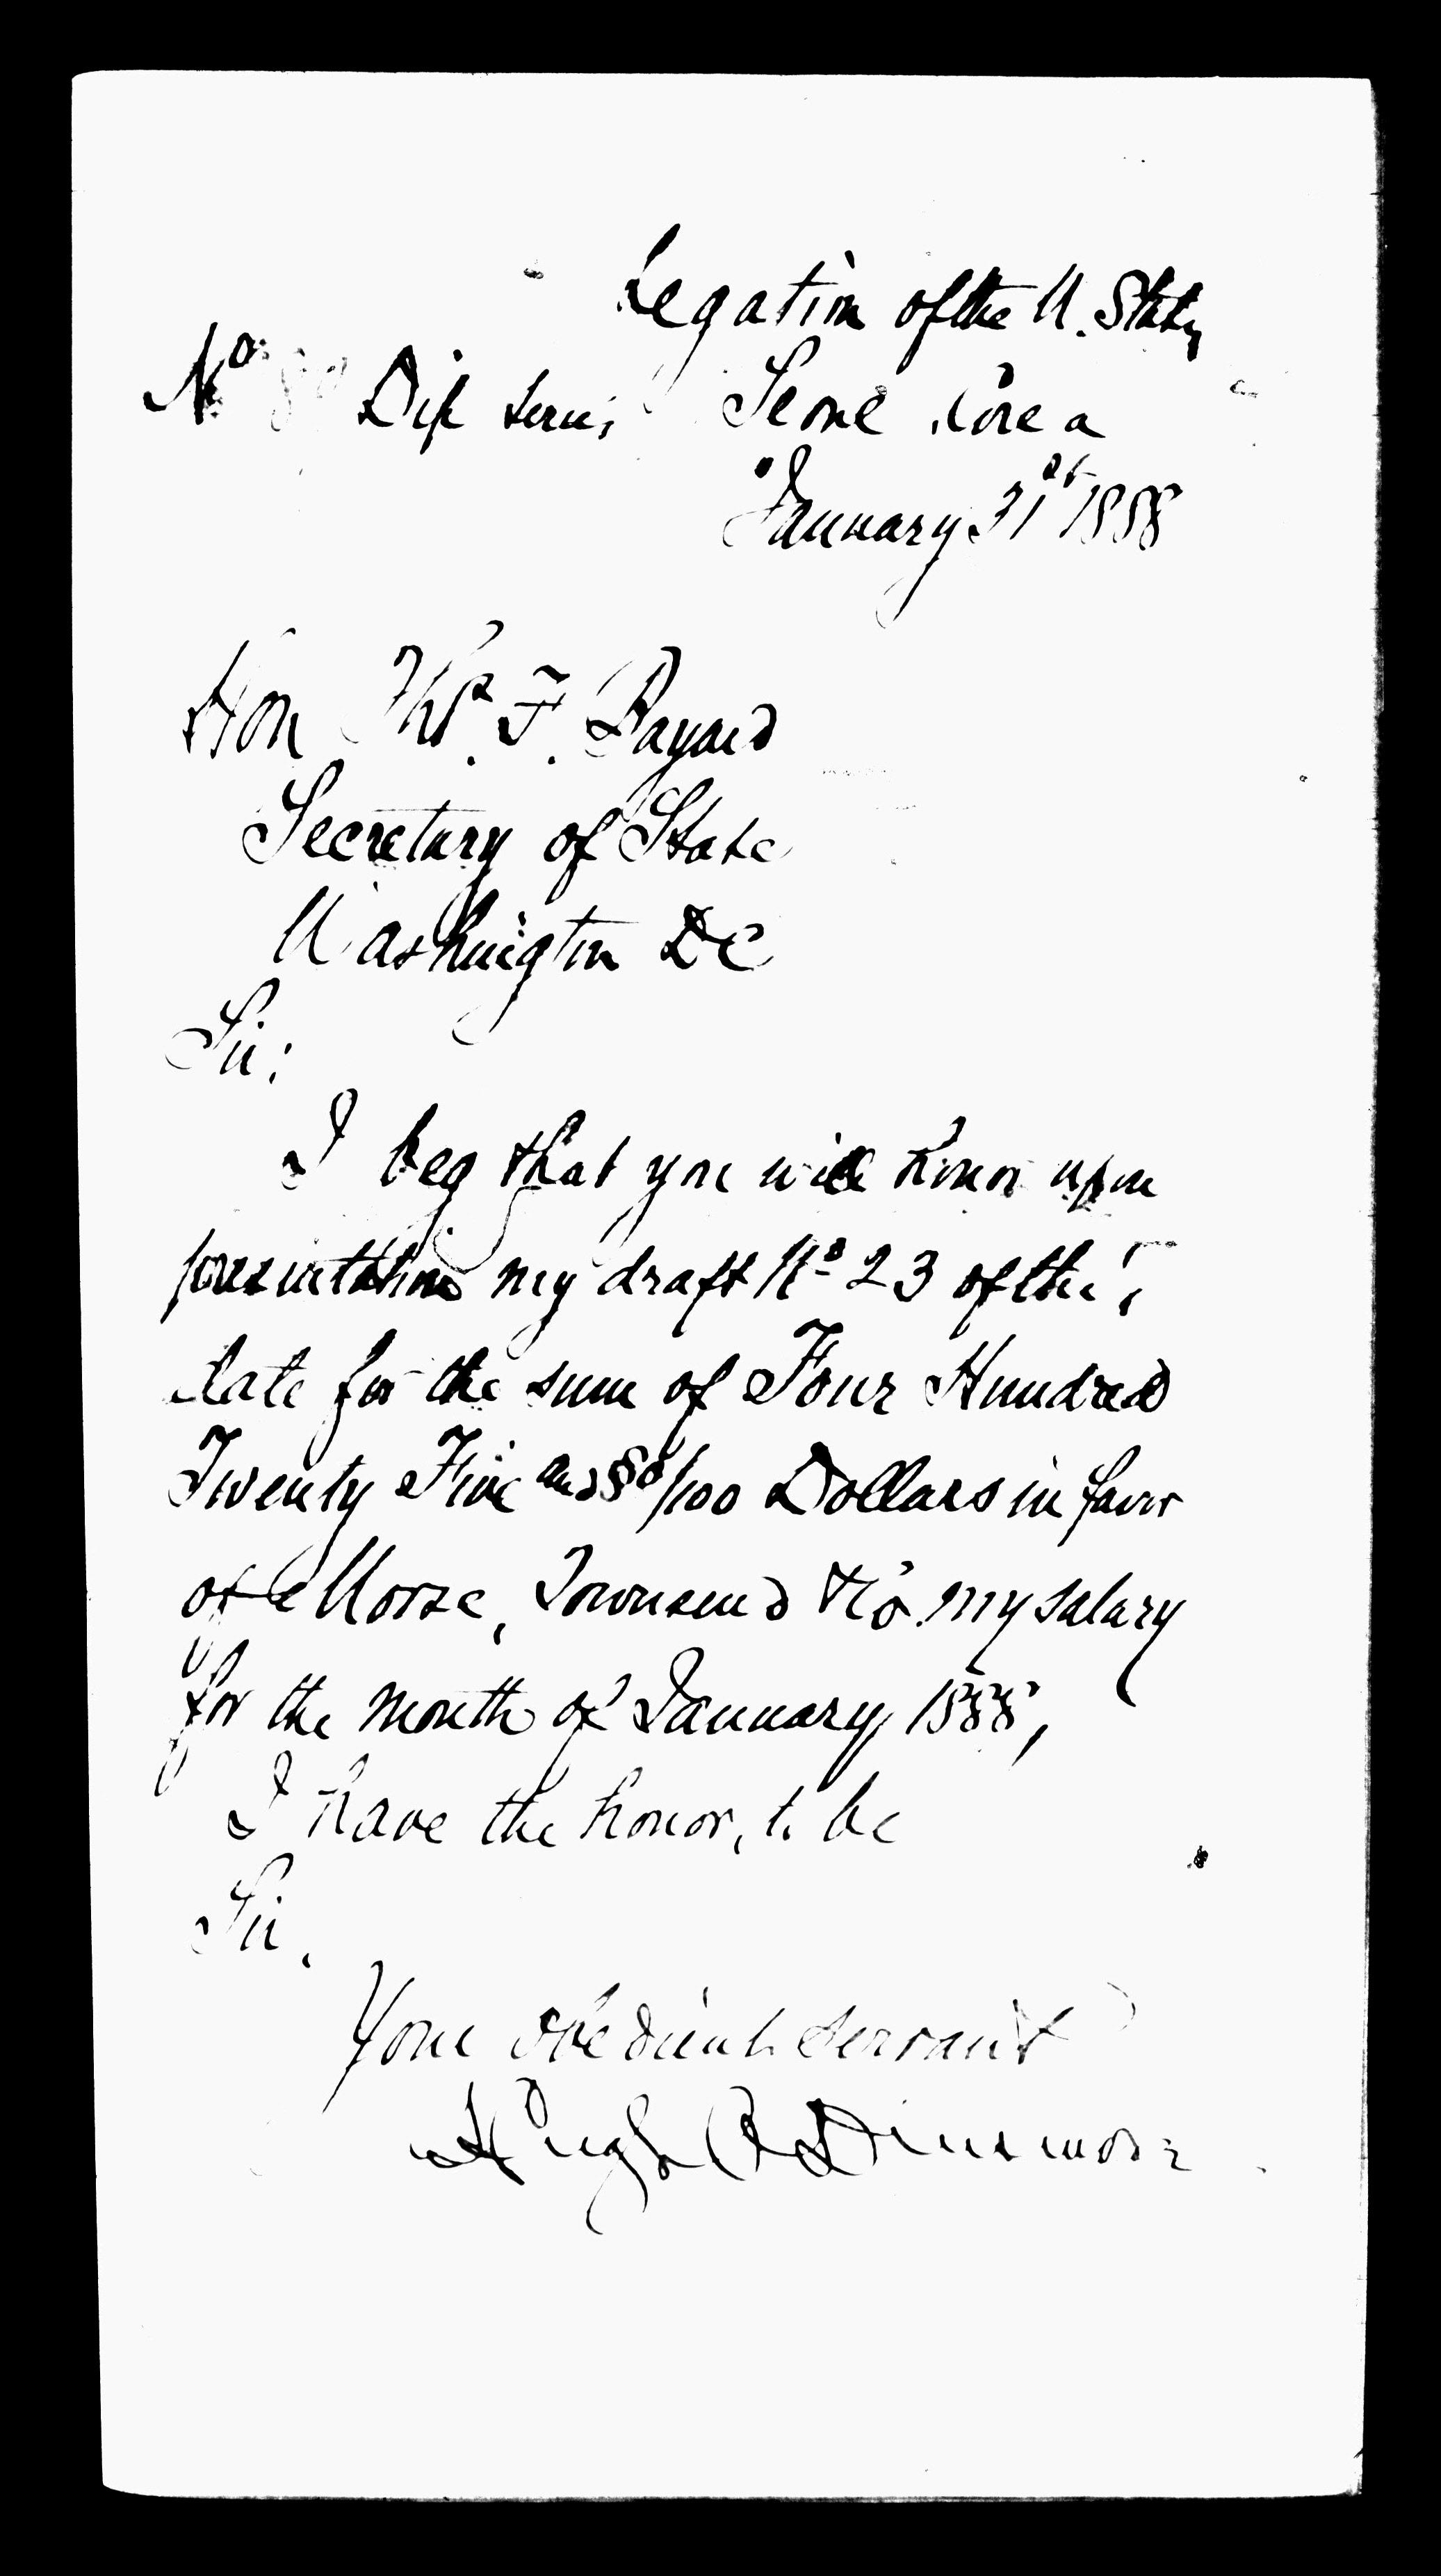 Legation of the U. States
No Dip Series Seoul Corea
January 31st 1888
Hon Thos. F. Bayard
Secretary of State
Washington DC
Sir:
I beg that you will honor upon
presentation my draft No 23 of this
date for the sum of Four Hundred
Twenty Five and 80/100 Dollars in favor
of Morse, Townsend & Co. my salary
for the month of January, 1888,
I have the honor, to be
Sir.
Your obedient servant
Hugh A Dinsmore